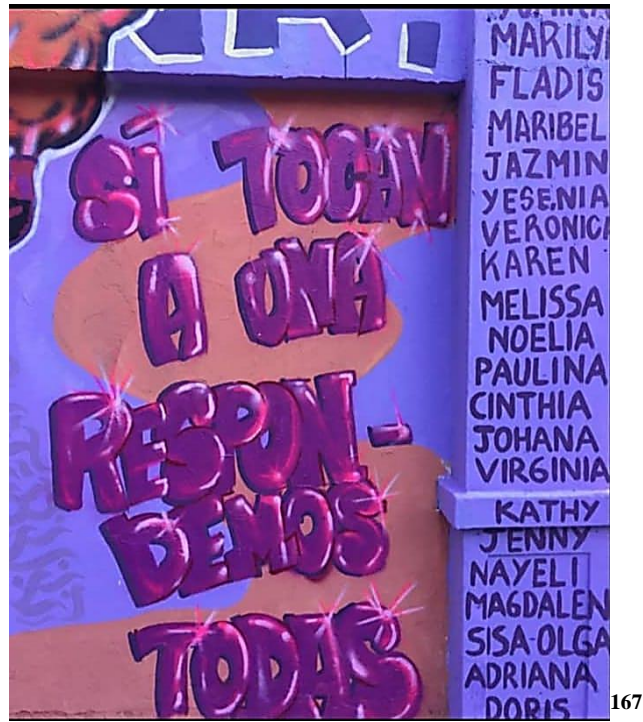 SÍ TOCAN
A UNA
RESPON-
DEMOS
TODAS
MARILY
FLADIS
MARIBEL
JAZMIN
YESENIA
VERONICA
KAREN
MELISSA
NOELIA
PAULINA
CINTHIA
JOHANA
VIRGINIA
KATHY
JENNY
NAYELI
MAGDALEN
SISA-OLGA
ADRIANA
DORIS
167